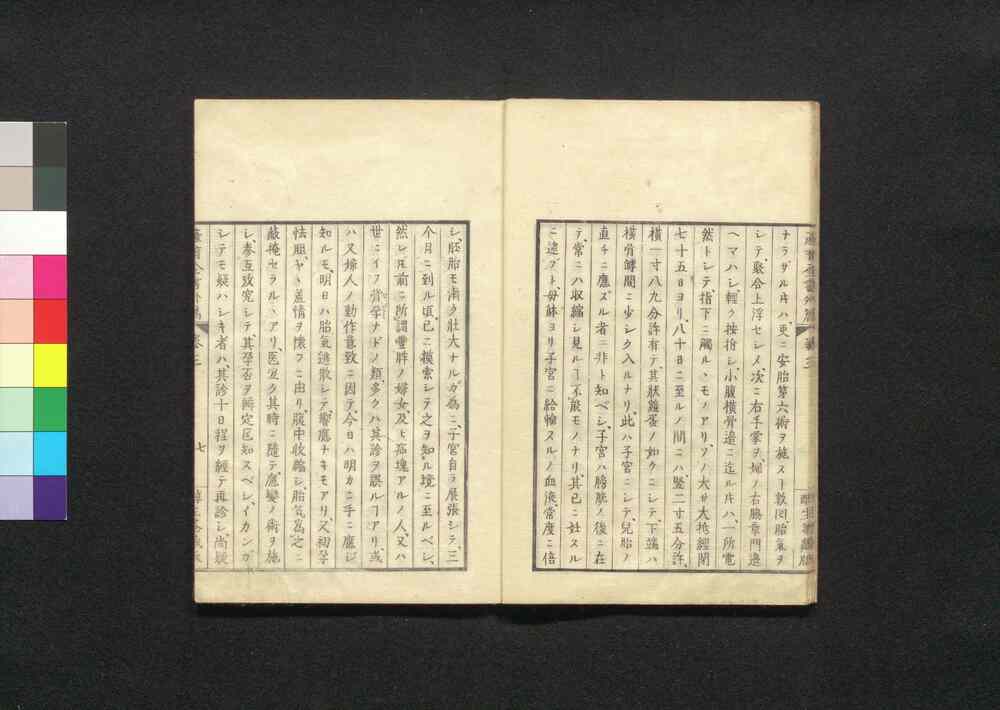 ナラザルヿハ、更ニ安胎第六術ヲ施スヿ数囘胎氣ヲ
シテ、聚合上浮セシメ、次ニ右手掌ヲ、婦ノ右脇章門邉
ヘマハシ輕ク按拊シ、小腹横骨邉ニ迄ルヿハ、一所電
然トシテ、指下ニ觸ル、モノアリ、ソノ大サ大抵經閉
七十五日ヨリ、八十日ニ至ルノ間ニハ、竪二寸五分許、
横一寸八九分許有テ、其狀雞蛋ノ如クニシテ、下端ハ
横骨罅間ニ少シク入ルナリ、此ハ子宮ニシテ、兒胎ノ
直チニ應ズル者ニ非ト知ベシ、子宮ハ膀胱ノ後ニ在
テ、常ニハ收縮シ見ルヿ不能モノナリ、其已ニ妊スル
ニ逮ブト、母軆ヨリ子宮ニ給輸スルノ血液常度ニ倍
シ、胚胎モ漸ク壯大ナルガ為ニ、子宮自ラ展張シテ、三
今月ニ到ル頃、已ニ摸索シテ之ヲ知ル境ニ至ルベシ、
然レ圧前ニ所謂豐胖ノ婦女、及ヒ塊アルノ人、又ハ
世ニイフ脊孕ナドノ類、多クハ其診ヲ誤ルヿアリ、或
ハ又婦人ノ動作意致ニ因テ、今日ハ明カニ手ニ應ジ
知ルモ、明日ハ胎氣遊散シテ響應ナキモアリ、又初孕
怯胆、ヤヽ羞情ヲ懐フニ由リ、腹中收縮シ、胎気為之ニ
蔽掩セラル、アリ、医宜ク其時ニ隨テ、應變ノ術ヲ施
シ、參互攷究シテ、其孕否ヲ辨定スベシ、イカンガ
シテモ疑ハシキ者ハ、其診十日程ヲ經テ再診シ、尚疑
卷三
七